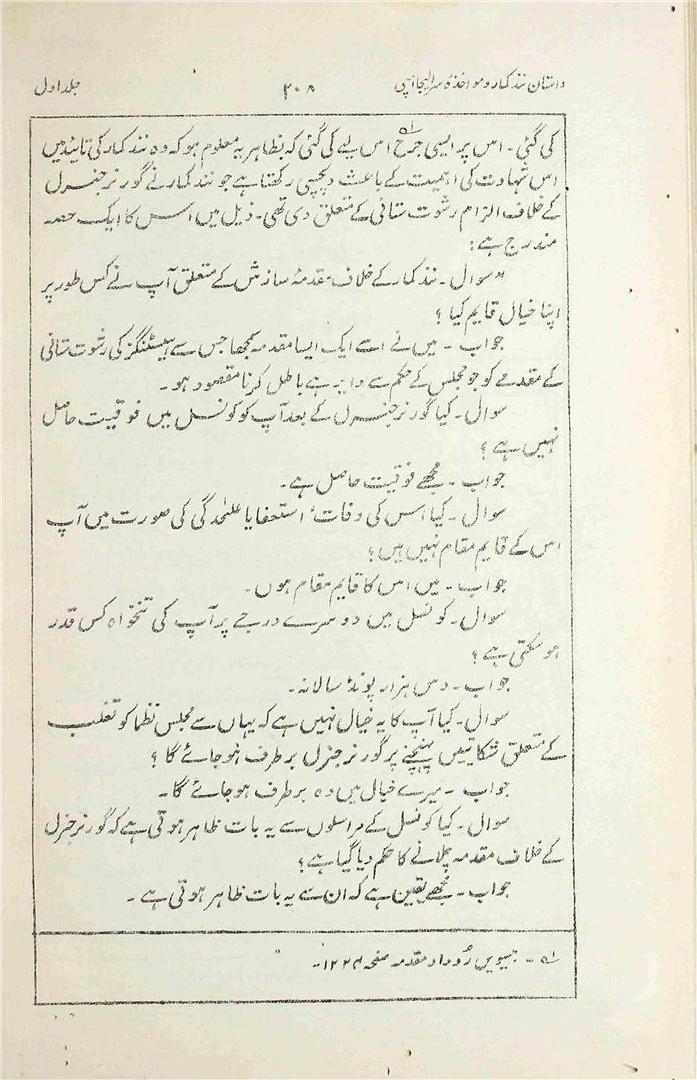 داستان نند کمار و مواخذہ سر الیجا امپی ۲۰۸ جلد اول
کی گئی۔ اس پر ایسی جرح لہ اس لیے کی گئی کہ بظاہر یہ معلوم ہو کہ وہ نند کمار کی تائید میں
اس شہادت کی اہمیت کے باعث دلچسپی رکھتا ہے جو نند کمار نے گورنر جنرل
کے خلاف الزام رشوت ستانی کے متعلق دی تھی۔ ذیل میں اس کا ایک حصہ
مندرج ہے:
"سوال۔ نند کمار کے خلاف مقدمۂ سازش کے متعلق آپ نے کس طور پر
اپنا خیال قایم کیا ؟
جواب ۔ میں نے اسے ایک ایسا مقدمہ سمجھا جس سے ہیسٹنگز کی رشوت ستانی
کے مقدمے کو جو مجلس کے حکم سے دایر ہے باطل کرنا مقصود ہو۔
سوال۔ کیا گورنر جنرل کے بعد آپ کو کونسل میں فوقیت حاصل
نہیں ہے ؟
جواب ۔ مجھے فوقیت حاصل ہے۔
سوال ۔ کیا اس کی وفات، استعفا یا علٰحدگی کی صورت میں آپ
اس کے قایم مقام نہیں ہیں؟
جواب ۔ میں اس کا قایم مقام ہوں۔
سوال۔ کونسل میں دوسرے درجے پر آپ کی تنخواہ کس قدر
ہو سکتی ہے ؟
جواب ۔ دس ہزار پونڈ سالانہ۔
سوال۔ کیا آپ کا یہ خیال نہیں ہے کہ یہاں سے مجلس نظما کو تغلب
کے متعلق شکایتیں پہنچنے پر گورنر جنرل برطرف ہو جائے گا ؟
جواب ۔ میرے خیال میں وہ برطرف ہو جائے گا۔
سوال۔ کیا کونسل کے مراسلوں سے یہ بات ظاہر ہوتی ہے کہ گورنر جنرل
کے خلاف مقدمہ چلانے کا حکم دیا گیا ہے؟
جواب ۔ مجھے یقین ہے کہ ان سے یہ بات ظاہر ہوتی ہے ۔
لہ ۔ بیسویں رُوداد مقدمہ صفحہ